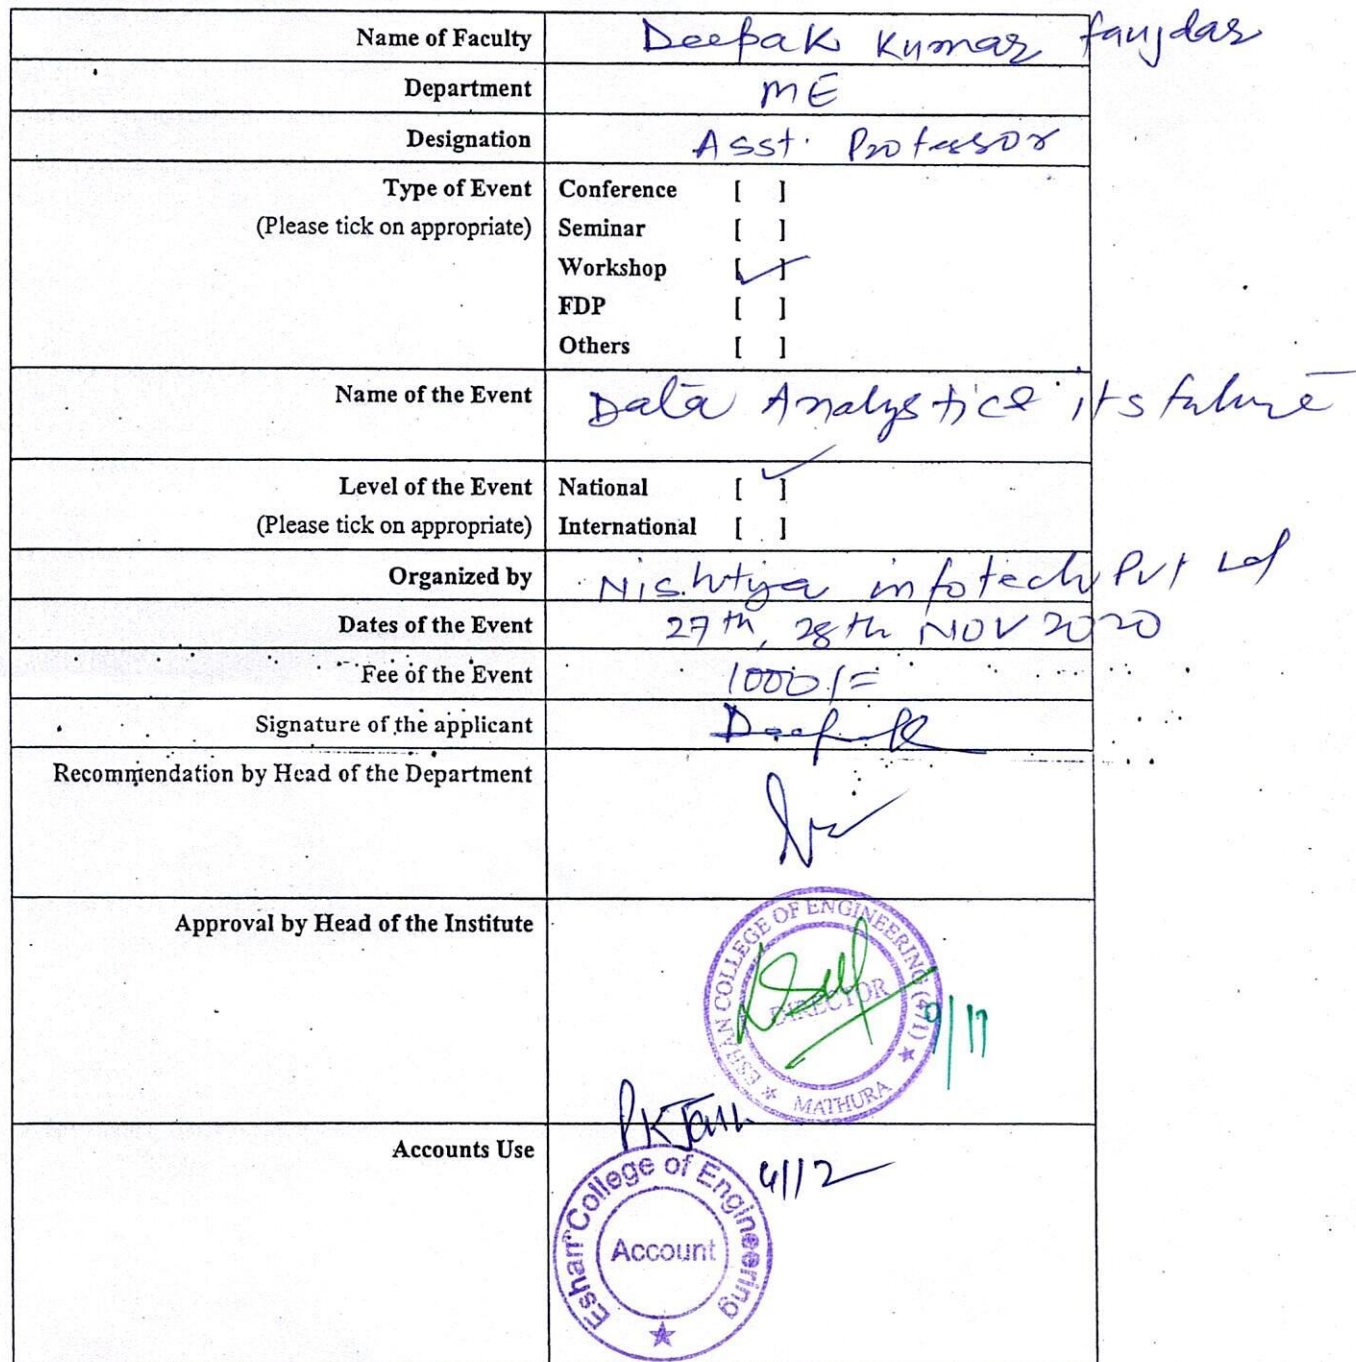 Name of Faculty Deepak Kumar faujdar
Department ME
Designation Asst. Professor
Type of Event Conference [ ]
(Please tick on appropriate) Seminar [ ]
Workshop [✓]
FDP [ ]
Others [ ]
Name of the Event Data Analystice its future
Level of the Event National [✓]
(Please tick on appropriate) International [ ]
Organized by infotech Pvt Ltd
Dates of the Event 27th, 28th NOV 2020
Fee of the Event 1000/=
Signature of the applicant Deepak
Recommendation by Head of the Department
Approval by Head of the Institute
ESHAN COLLEGE OF ENGINEERING (471) ★ MATHURA ★
DIRECTOR
PKJain
Accounts Use
4/12
Eshan College of Engineering ★
Account